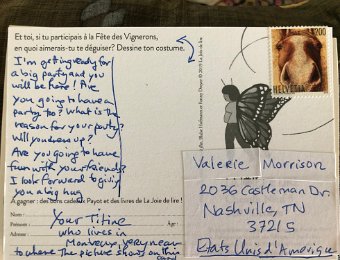 Et toi, si tu participais à la Fête des Vignerons,
en quoi aimerais-tu te déguiser? Dessine ton costume.
I'm getting ready for
a big party and you
will be here! Are
you going to have a
party too? What is the
reason for your party?
Will you dress up?
Are you going to have
fun with your friends?
I look forward to giving
you a big hug
À gagner : des bons cadeaux Payot et des livres de La Joie de lire !
Nom :
Your Titine
Prénom :
Âge :
who lives in
Adresse :
Montreux, very near
to where the picture shows on this
card
200
HELVETIA
© 2019 La Joie de lire
Valerie Morrison
2036 Castleman Dr.
Nashville, TN
37215
Etats Unis d'Amérique